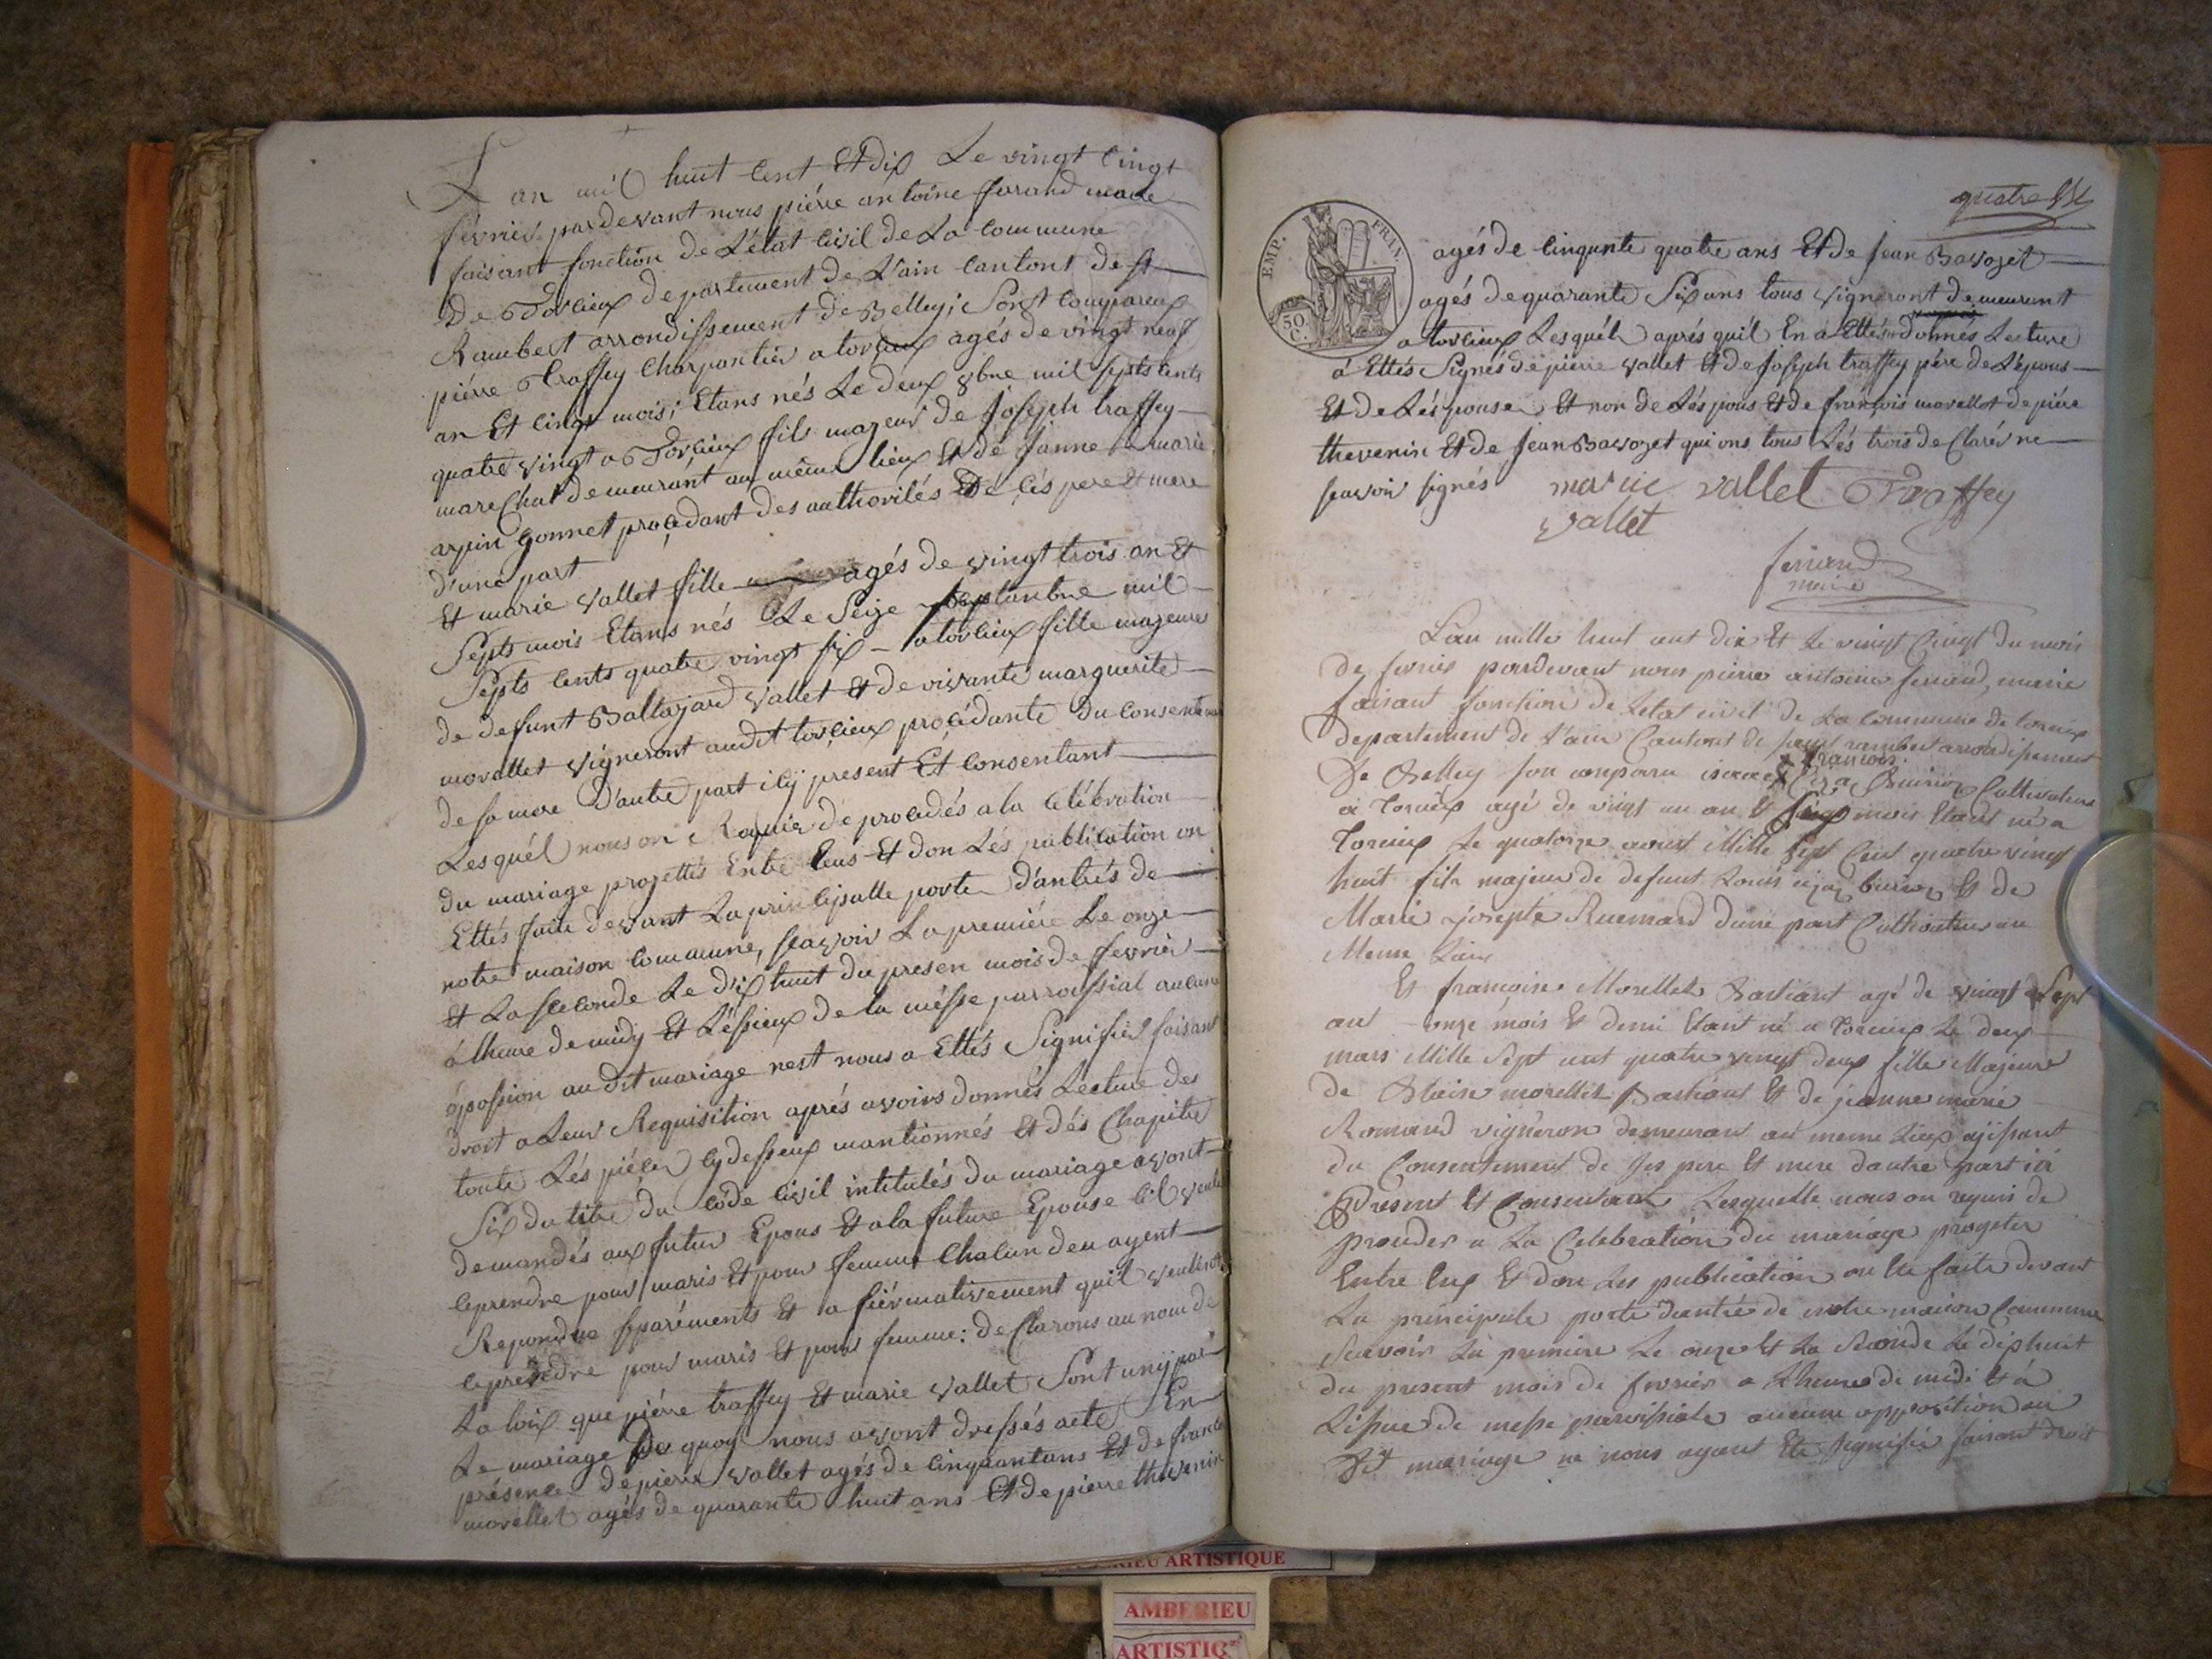 L an mil huit Cent Et dix Le vingt Cinqt
février pardevant nous piérre antoine ferrand maire
faisant fonction de L'état Civil de La Commune
De Torcieux departement de L'ain Cantont de st
Rambert arrondissement de Belley; Sont Compareux
piérre Traffey Charpantier a torcieux agés de vingt neuf
an Et cinqt mois; Etans nés Le deux 8bre mil septs Cents
quatre vingt a Torcieux fils majeur de Joseph traffey
marechal demeurant au même lieux Et de Janne marie
arpin Gonnet procedant des authorités De Cés pere Et mere
d'une part
Et marie vallet fille agés de vingt trois an Et
Septs mois Etans nés Le Seize Septanbre mil
Septs Cents quatre vingt six a torcieux fille majeure
de defunt Baltazard vallet Et de vivante marguerite
morellet vigneront audit torcieux procédante Du Consentement
de sa mere D'autre part icy present Et Consentant
Lesquél nous on Requis de procedés a la Célébration
du mariage projettés Entre Eeus Et don Lés publication on
Ettés faite devant La principalle porte D'antrés de
notre maison Commune, scavoir La premiére Le onze
Et La seconde Le dix huit du presen mois de fevrier
á lheure de midy Et L'éssieux de la mésse parroissial aucune
oposion au dit mariage nest nous a Ettés Signifiés faisant
droit a Leur Requisition aprés avoirs donnés Lecture des
toute Lés piéces cy desseux mantionnés Et dés Chapitre
Six du titre du Code Civil intitulés du mariage avont
demandés aux futur Epous Et a la future Epouse s'il veule
ceprendre pour maris Et pour femme Chacun deu ayent
Repondue separéments Et affiérmativement quil veulent
ceprendre pour maris Et pour femme: deClarons au nom de
La loix que piérre traffey Et marie vallet Sont uny par
Le mariage De quoy nous avont dressés acte En
présence de pierre vallet agés de Cinquantans Et de francois
morellet agés de quarante huit ans Et de pierre thevenin
quatre
EMP. FRAN.
50. C.
agés de Cinquante quatre ans Et de Jean Bavozet
agés de quarante Six ans tous vigneront demeurant
a torcieux Lesquéls aprés quil En a Ettés donnés Lecture
á Ettés Signés de pierre vallet Et de Joseph traffey pére de Lépous
Et de Lés pouse Et non de Lés pous Et de francois morellet de piére
thevenin Et de Jean Bavozet qui ons tous Lés trois deClarés ne
scavoir signés marie vallet Traffey
vallet
ferrand
maire
L'an mille huit cent dix Et Le vingt Cinqt du mois
de fevrier pardevant nous pierre antoine ferrand, maire
faisant fonction de Letat civil de La Commune de torcieux
departement de l'ain Cantont de saint rambert arrondissement
De Belley son comparu isaac francois Buisson Cultivateur
á Torcieux agé de vingt un an Et six mois Etant né a
Torcieux Le quatorze aoust Mille Sept Cent quatre vingt
huit fils majeur de defunt Louis buisson Et de
Marie Josepte Ruemard dune part Cultivateur au
Meme Lieux
Et francoise Morellet Bastiant agé de vingt Sept
ant onze mois Et demi Etant né a Torcieux Le deux
mars Mille Sept cent quatre vingt deux fille Majeure
de Blaise morellet Bastiant Et de jeanne marie
Romand vigneron demeurant au meme Lieux agissant
du Consentement de ses pere Et mere dautre part ici
Present Et Consentant Lesquelle nous on requis de
proceder a La Celebration du mariage projeter
Entre Eux Et don Les publication on Eté faite devant
La principale porte dantrée de notre maison Commune
Scavoir La premiere Le onze Et La Seconde Le dix huit
du present mois de fevrier a Lheure de midi Et á
Lissue de messe paroissiale aucune opposition au
Dit mariage ne nous ayant Eté Signifié faisant droit
AMBERIEU ARTISTIQUE
AMBERIEU
ARTISTIQ